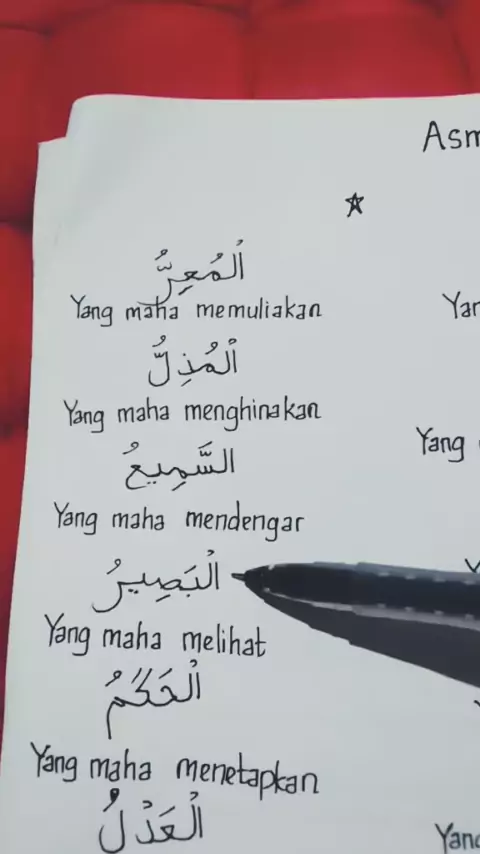 Asm
اَلْمُعِزُّ
Yang maha memuliakan
اَلْمُذِلُّ
Yang maha menghinakan
السَّمِيعُ
Yang maha mendengar
اَلْبَصِيرُ
Yang maha melihat
اَلْحَكَمُ
Yang maha menetapkan
اَلْعَدْلُ
Yan
Yang
Yang